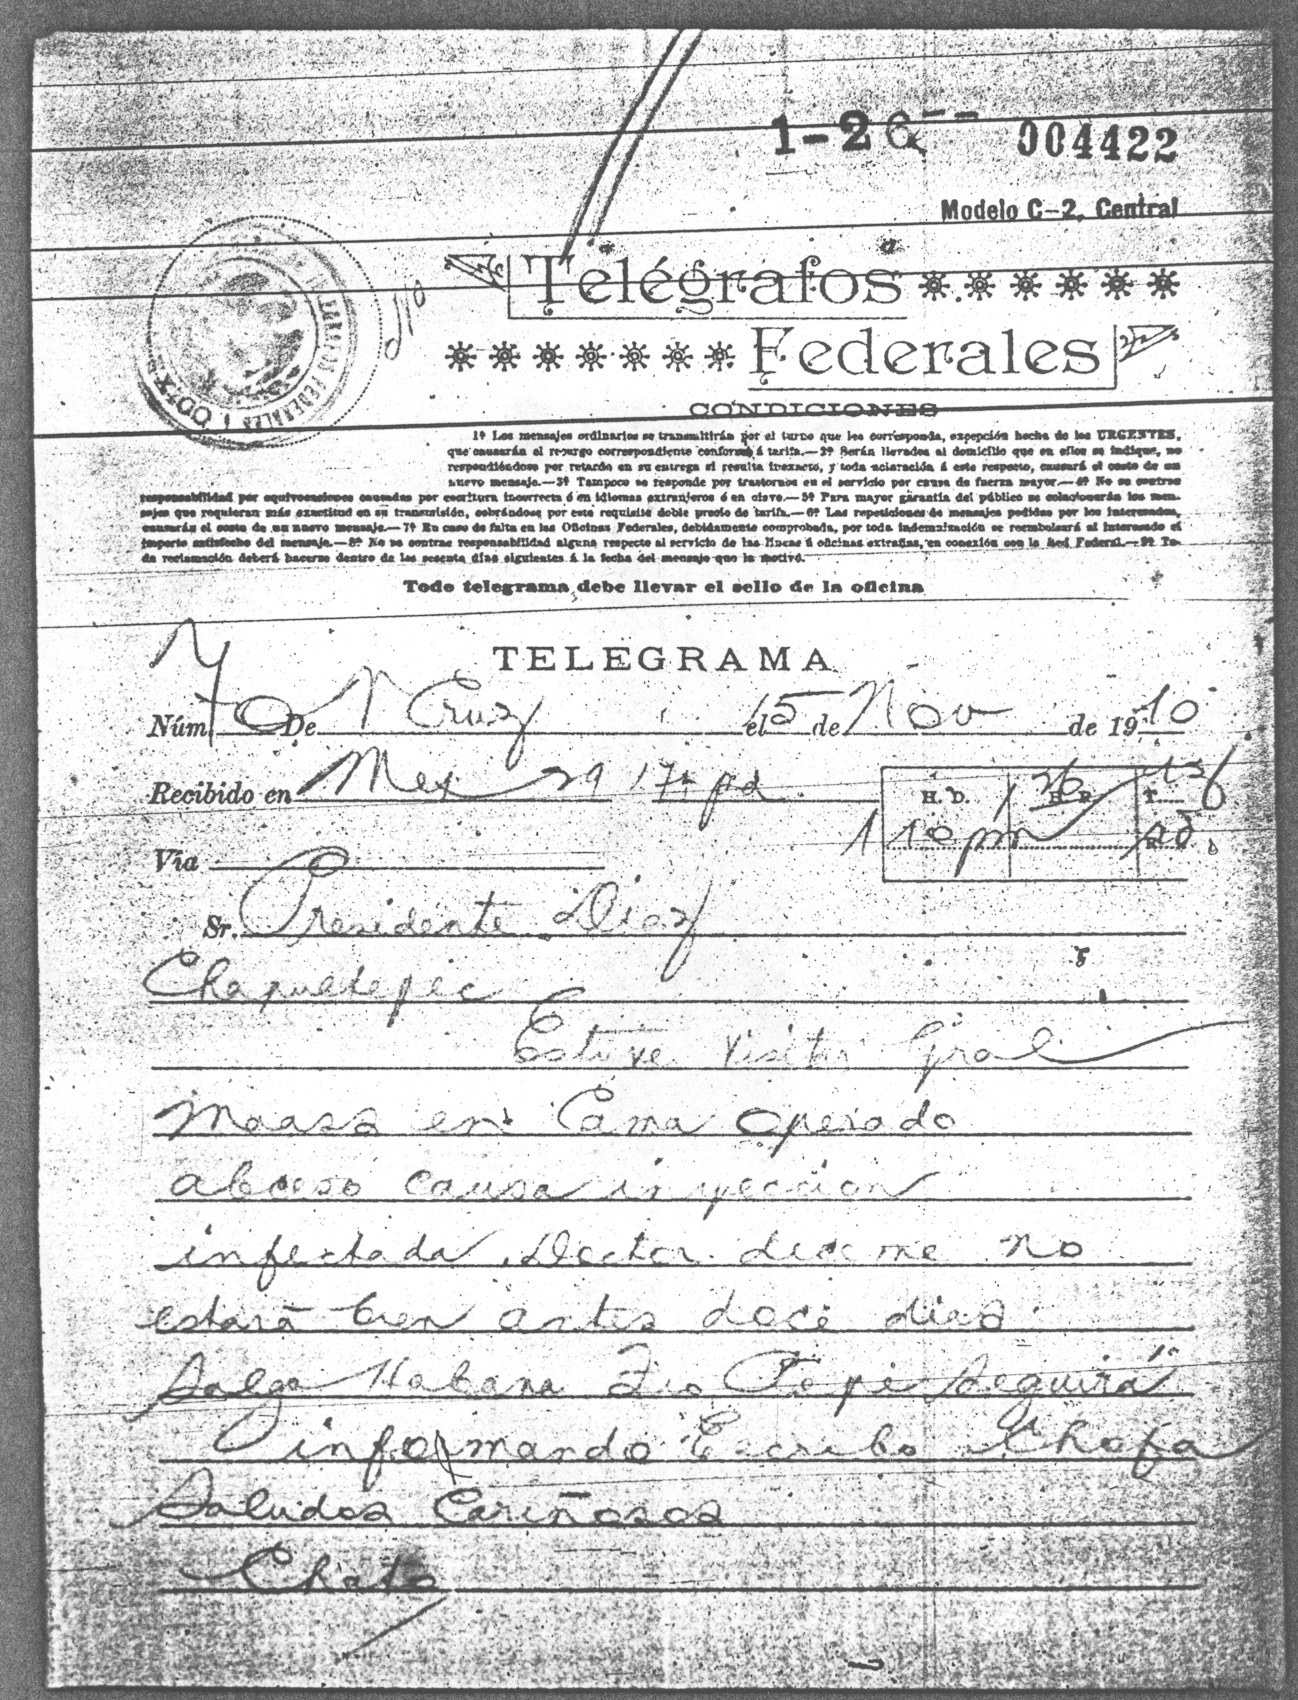 1-26-- 004422
Modelo C-2, Central
Telégrafos
Federales
CONDICIONES
1ª Los mensajes ordinarios se transmitirán por el turno que les corresponda, excepción hecha de los URGENTES,
que causarán el recargo correspondiente conforme á tarifa.—2ª Serán llevados al domicilio que en ellos se indique, no
respondiéndose por retardo en su entrega si resulta inexacto, y toda aclaración á este respecto, causará el costo de un
nuevo mensaje.—3ª Tampoco se responde por trastornos en el servicio por causa de fuerza mayor.—4ª No se contrae
responsabilidad por equivocaciones causadas por escritura incorrecta ó en idiomas extranjeros ó en clave.—5ª Para mayor garantía del público se colacionarán los men-
sajes que requieran más exactitud en su transmisión, cobrándose por este requisito doble precio de tarifa.—6ª Las repeticiones de mensajes pedidas por los interesados,
causarán el costo de un nuevo mensaje.—7ª En caso de falta en las Oficinas Federales, debidamente comprobada, por toda indemnización se reembolsará al interesado el
importe satisfecho del mensaje.—8ª No se contrae responsabilidad alguna respecto al servicio de las líneas ú oficinas extrañas, en conexión con la Red Federal.—9ª To-
da reclamación deberá hacerse dentro de los sesenta días siguientes á la fecha del mensaje que la motivó.
Todo telegrama debe llevar el sello de la oficina
TELEGRAMA
Núm. 70 De V Cruz el 5 de Nov de 1910
Recibido en Mex 29 17 pd H. D. H. R. T.
Via 110 pm
Sr. Presidente Diaz
Chapultepec
Estuve visitar Gral
Maass en Cama operado
abceso causa inyeccion
infectada. Doctor diceme no
estará bien antes doce dias
Salgo Habana Fio Pepe seguirá
informando Escribo Chofa
Saludos Cariñosos
Chato